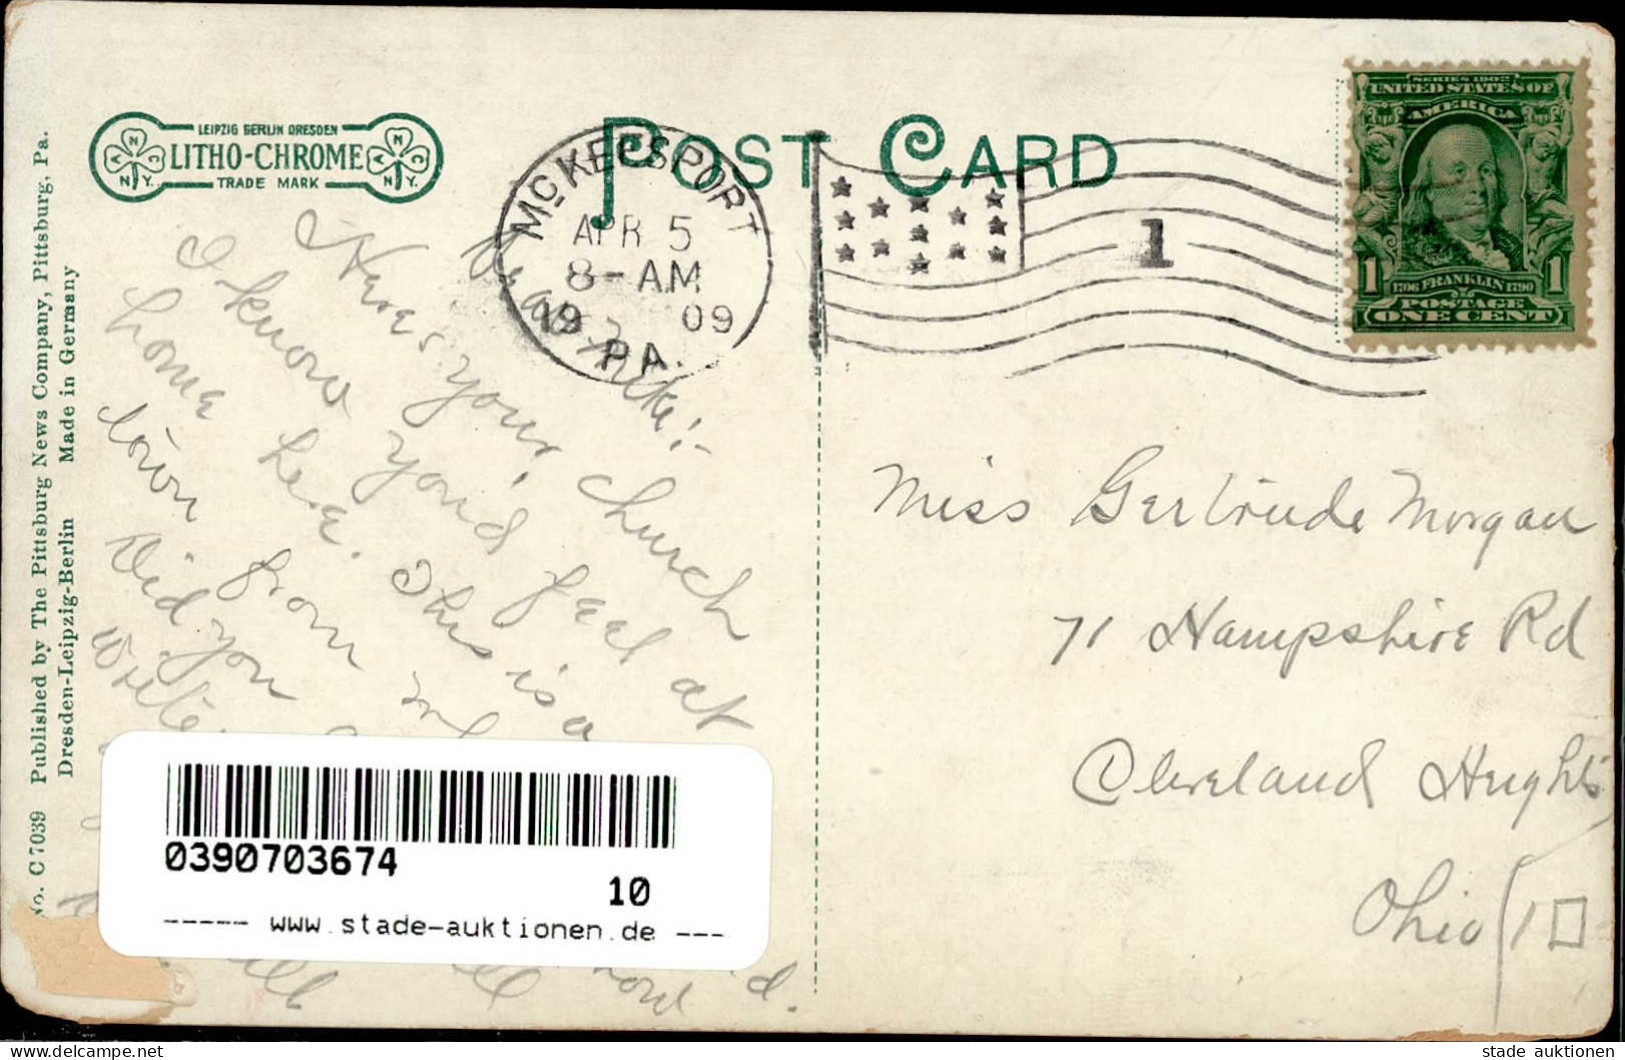 No. C 7039 Published by The Pittsburg News Company, Pittsburg, Pa.
Dresden-Leipzig-Berlin Made in Germany
LEIPZIG BERLIN DRESDEN
LITHO-CHROME
TRADE MARK
A N C
N.Y.
A N C
N.Y.
POST CARD
McKEESPORT
APR 5
8-AM
19 09
PA.
1
SERIES 1902
UNITED STATES OF
AMERICA
1 1706 FRANKLIN 1790 1
POSTAGE
ONE CENT
Here's your church
I know you'd feel at
home here. This is a
town from
Did you
write
Miss Gertrude Morgan
71 Hampshire Rd
Cleveland Heights
Ohio
10
0390703674
10
----- www.stade-auktionen.de ---
stade auktionen
delcampe.net
stade auktionen